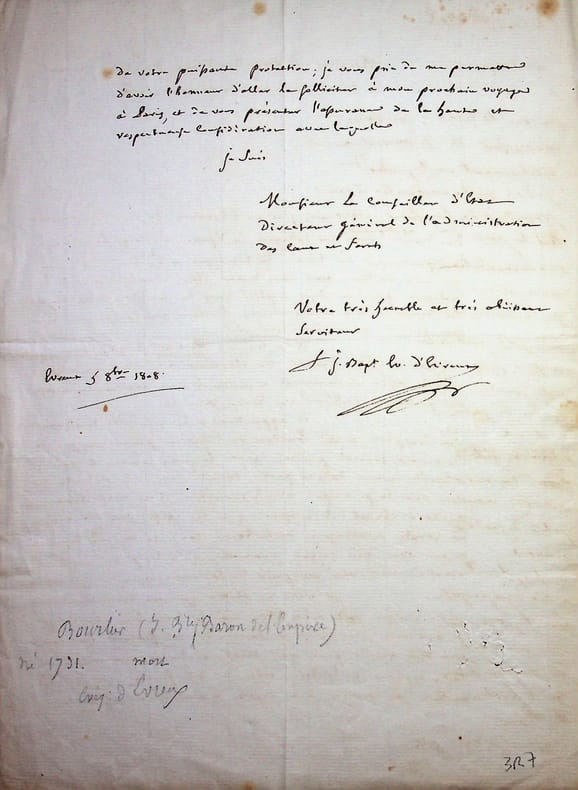 de votre puissante protection; je vous prie de me permettre
d'avoir l'honneur d'aller la solliciter à mon prochain voyage
à Paris, et de vous présenter l'assurance de la haute et
respectueuse considération avec laquelle
je suis
Monsieur Le Conseiller d'Etat
Directeur général de l'administration
des Eaux et Forêts
Votre très humble et très obéissant
Serviteur
+ j. Bapt. Ev. d'Evreux
Evreux 5 8bre 1808.
Bourlier (J. Bte Baron de l'Empire)
né 1731. mort
Evêq. d'Evreux
3R7